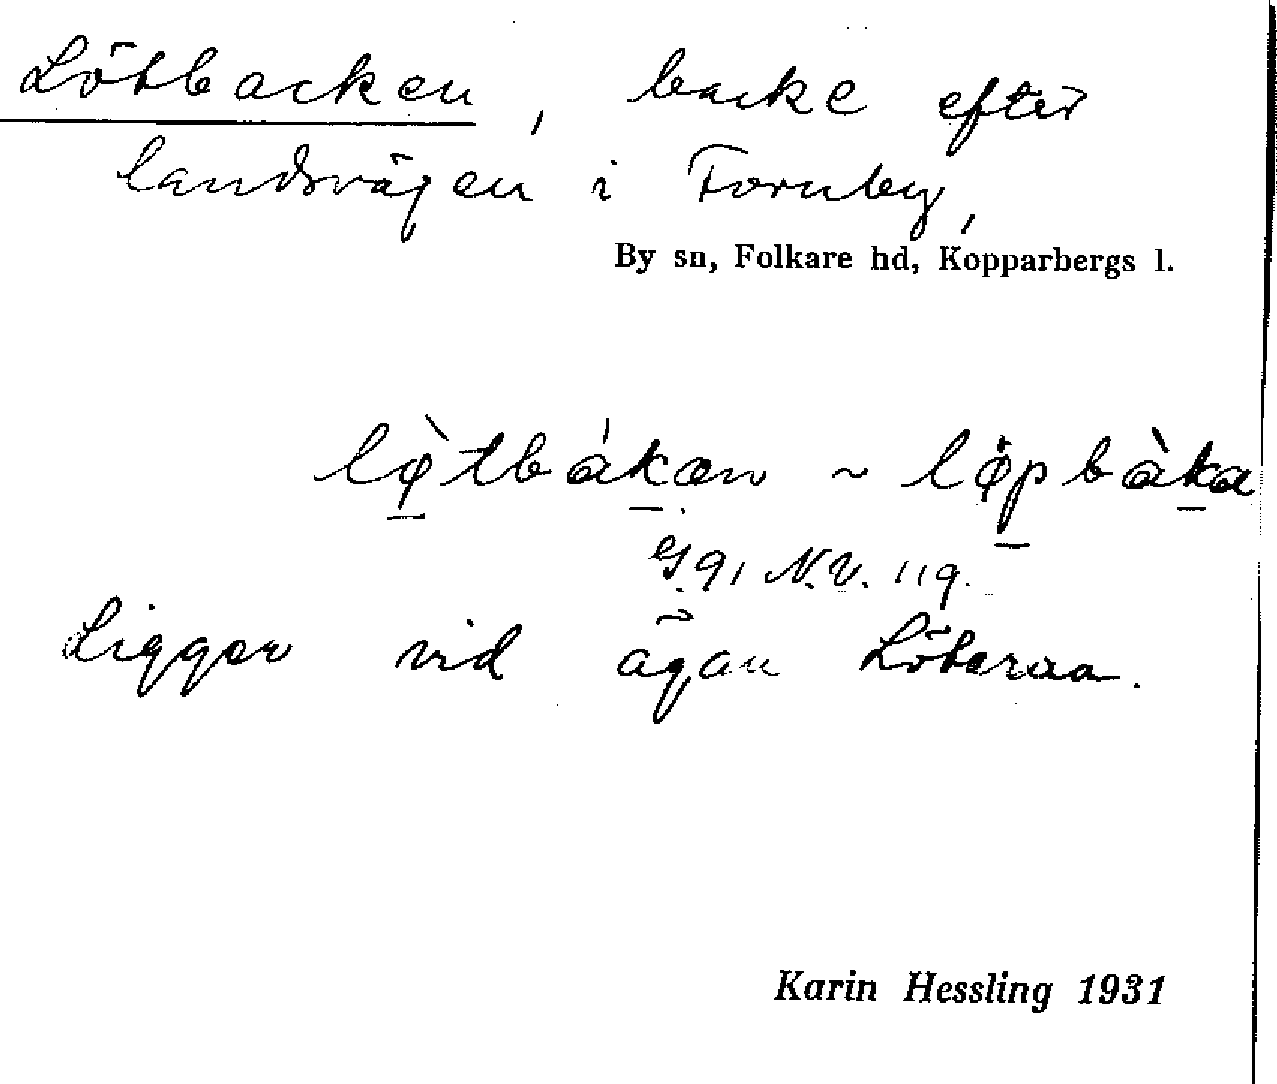 Lötbacken, backe efter
landsvägen i Fornby,
By sn, Folkare hd, Kopparbergs l.
lø̀tbákan ~ lø̀pbàka
G 91 N.V. 119.
Ligger vid ägan Löterna.
Karin Hessling 1931